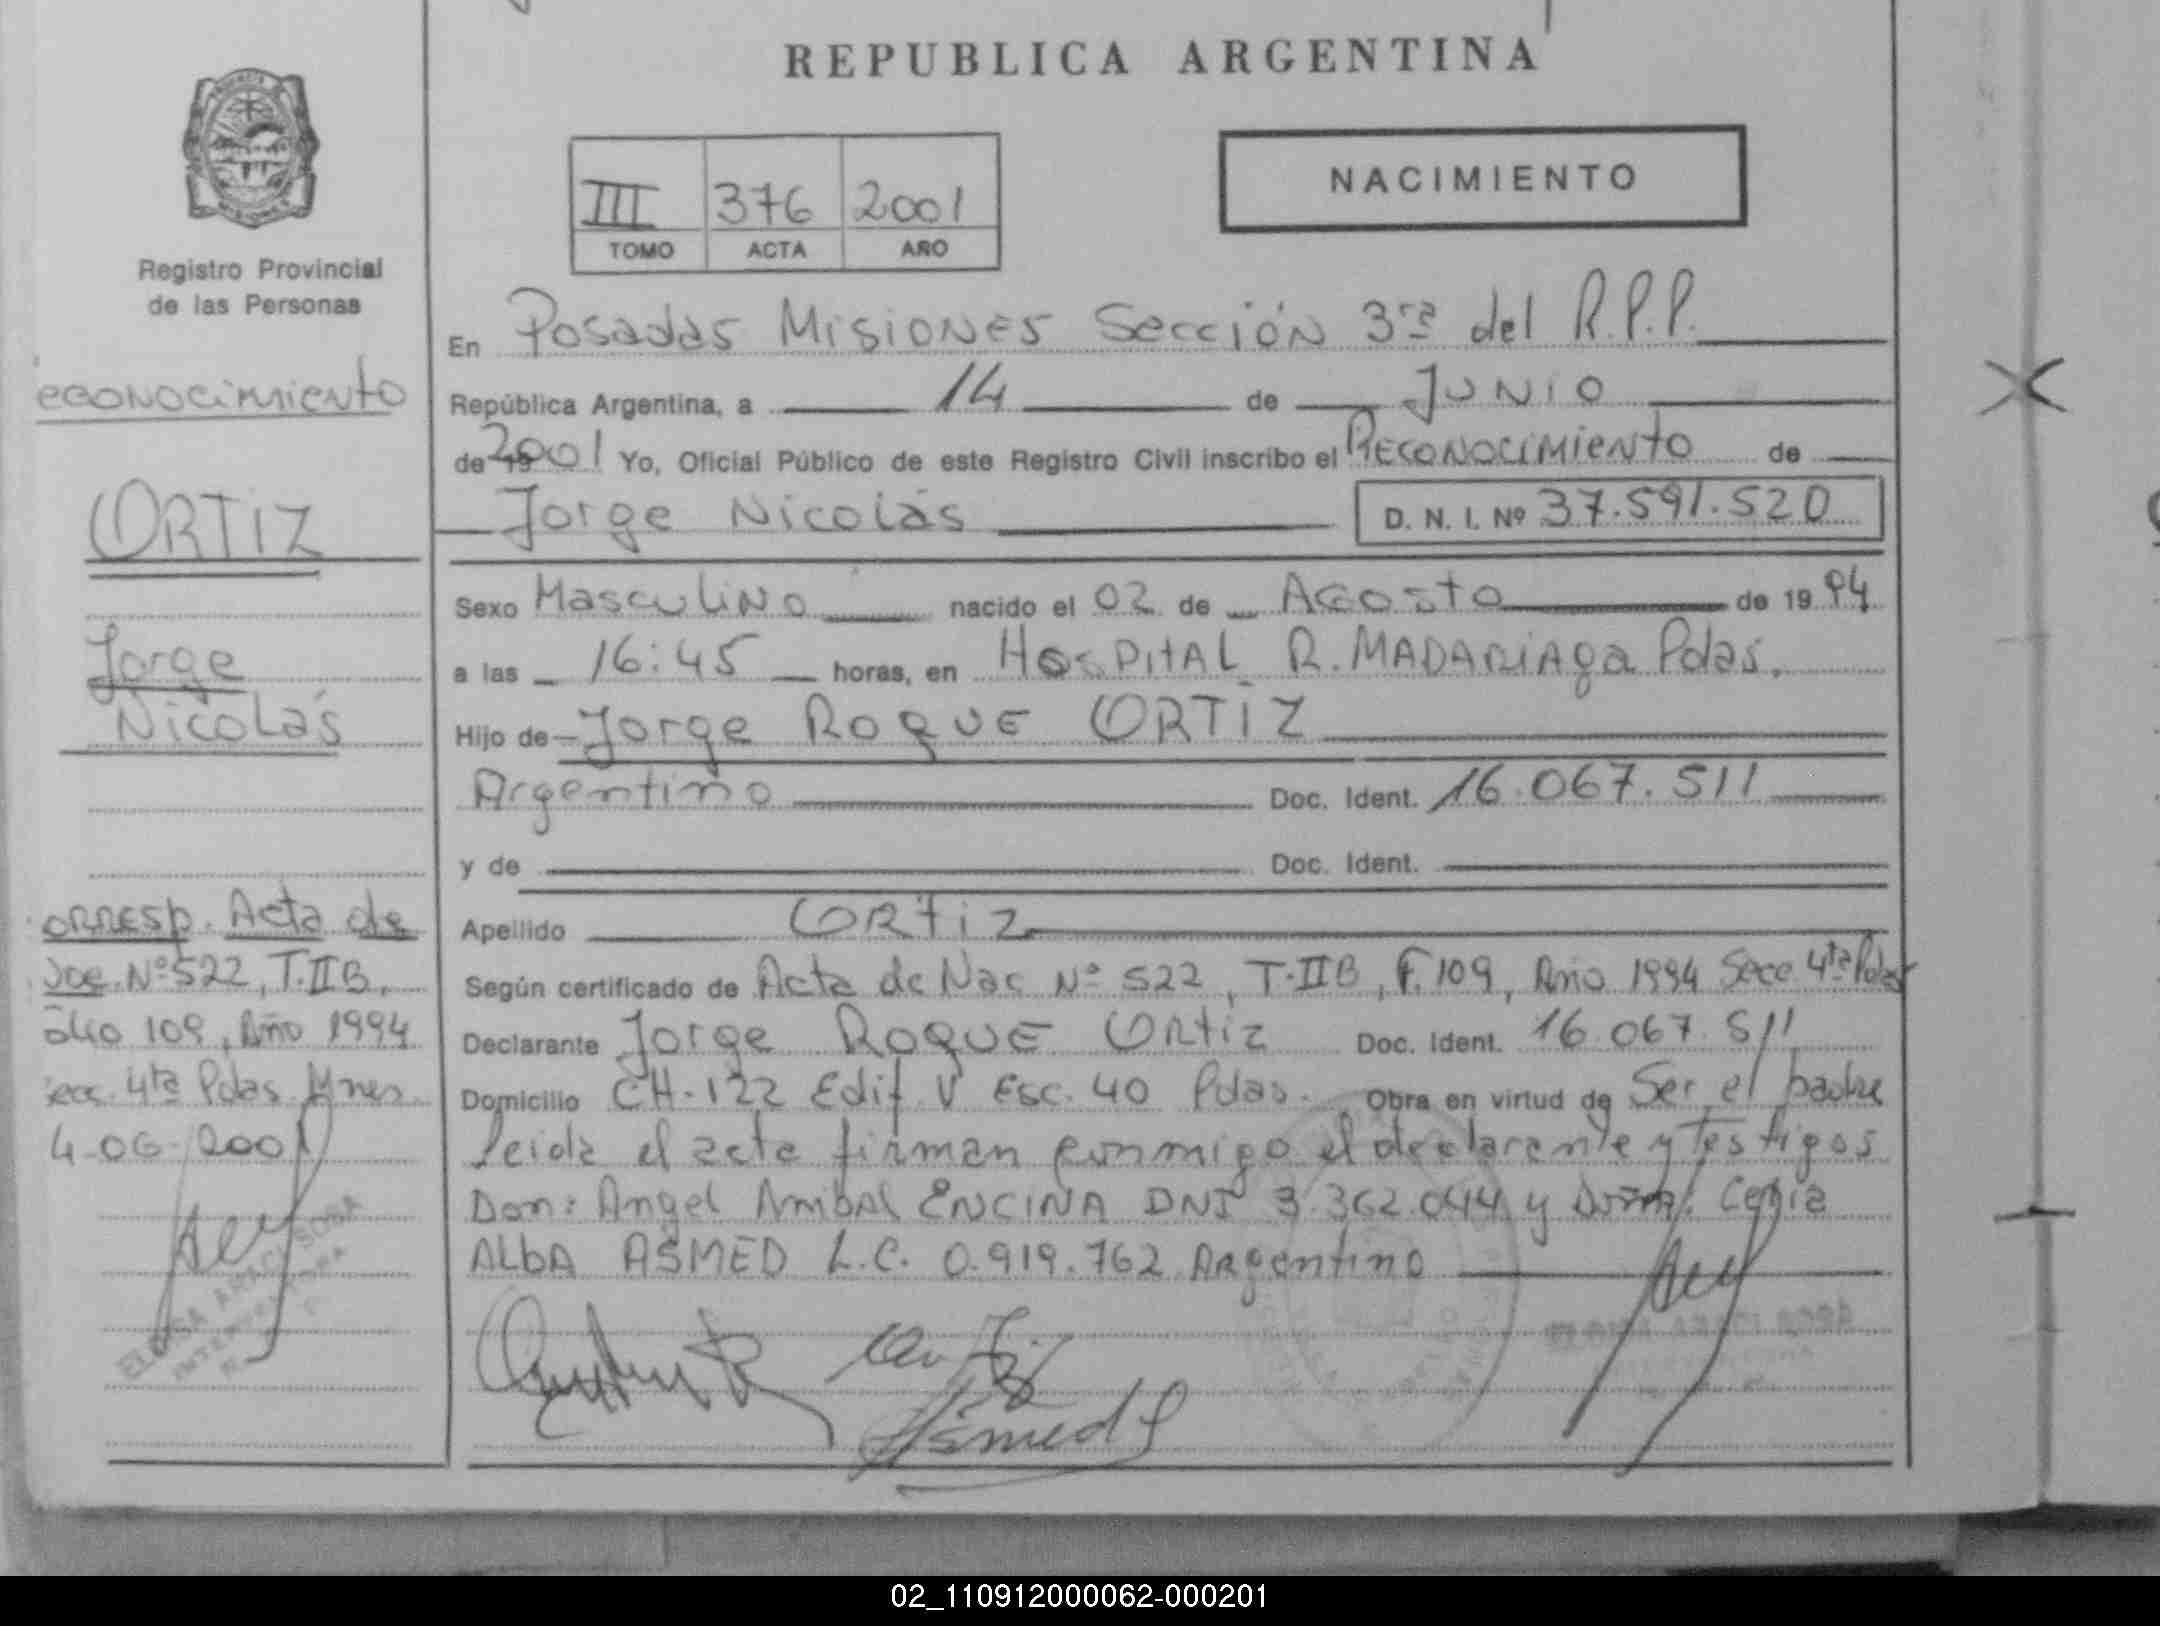 REPUBLICA ARGENTINA
III 376 2001
TOMO ACTA AÑO
NACIMIENTO
Registro Provincial
de las Personas
econocimiento
ORTIZ
Jorge
Nicolás
orresp. Acta de
Nº 522, T.IIB,
olio 109, Año 1994
4ta Pdas. Mnes.
4-06-2001
ELORSA ARACI SOSA
INTERVENTORA
En Posadas Misiones Sección 3ra del R.P.P.
República Argentina, a 14 de Junio
de 2001 Yo, Oficial Público de este Registro Civil inscribo el Reconocimiento de
Jorge Nicolás D. N. I. Nº 37.591.520
Sexo Masculino nacido el 02 de Agosto de 1994
a las 16:45 horas, en Hospital R. MADARIAga Pdas.
Hijo de Jorge Roque ORTIZ
Argentino Doc. Ident. 16.067.511
y de Doc. Ident.
Apellido ORTIZ
Según certificado de Acta de Nac Nº 522, T-IIB, F. 109, Año 1994 Secc 4ta Pdas
Declarante Jorge Roque Ortiz Doc. Ident. 16.067.511
Domicilio CH-122 Edif V Esc. 40 Pdas. Obra en virtud de Ser el padre
leida el acta firman conmigo el declarante y testigos
Don: Angel Anibal ENCINA DNI 3.362.044 y
ALBA ASMED L.C. 0.919.762 Argentino
Ortiz
Asmed
02_110912000062-000201